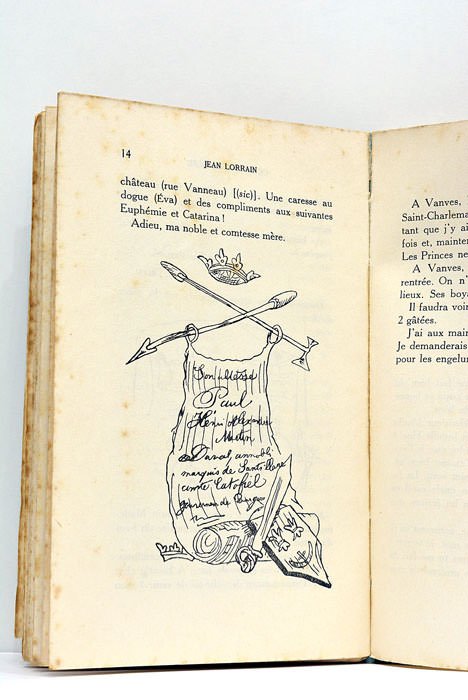 14
JEAN LORRAIN
château (rue Vanneau) [(sic)]. Une caresse au
dogue (Éva) et des compliments aux suivantes
Euphémie et Catarina !
Adieu, ma noble et comtesse mère.
Son altesse
Paul
Henri Alexandre
Martin
Duval, annobli
marquis de
comte
gouverneur de
A Vanves,
Saint-Charlema
tant que j'y ai
fois et, mainten
Les Princes ne
A Vanves,
rentrée. On n'
lieux. Ses boya
Il faudra voir
2 gâtées.
J'ai aux main
Je demanderais
pour les engelur